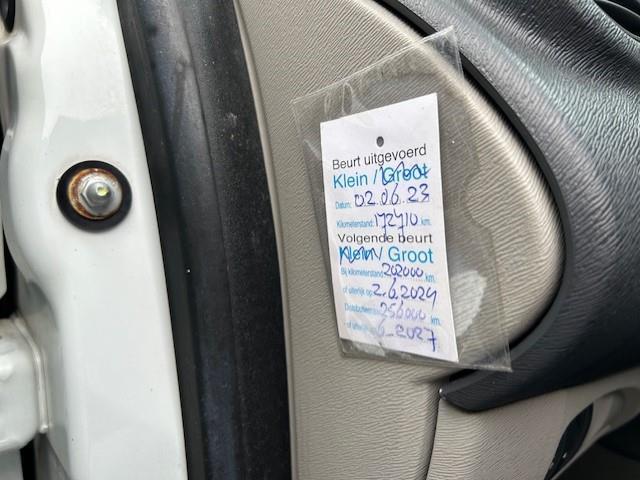 Beurt uitgevoerd
Klein / Groot
Datum: 02.06.23
Kilometerstand: 172710 km.
Volgende beurt
Klein / Groot
Bij kilometerstand: 202000 km.
of uiterlijk op: 2.6.2024
256000 km.
of uiterlijk 6_2027